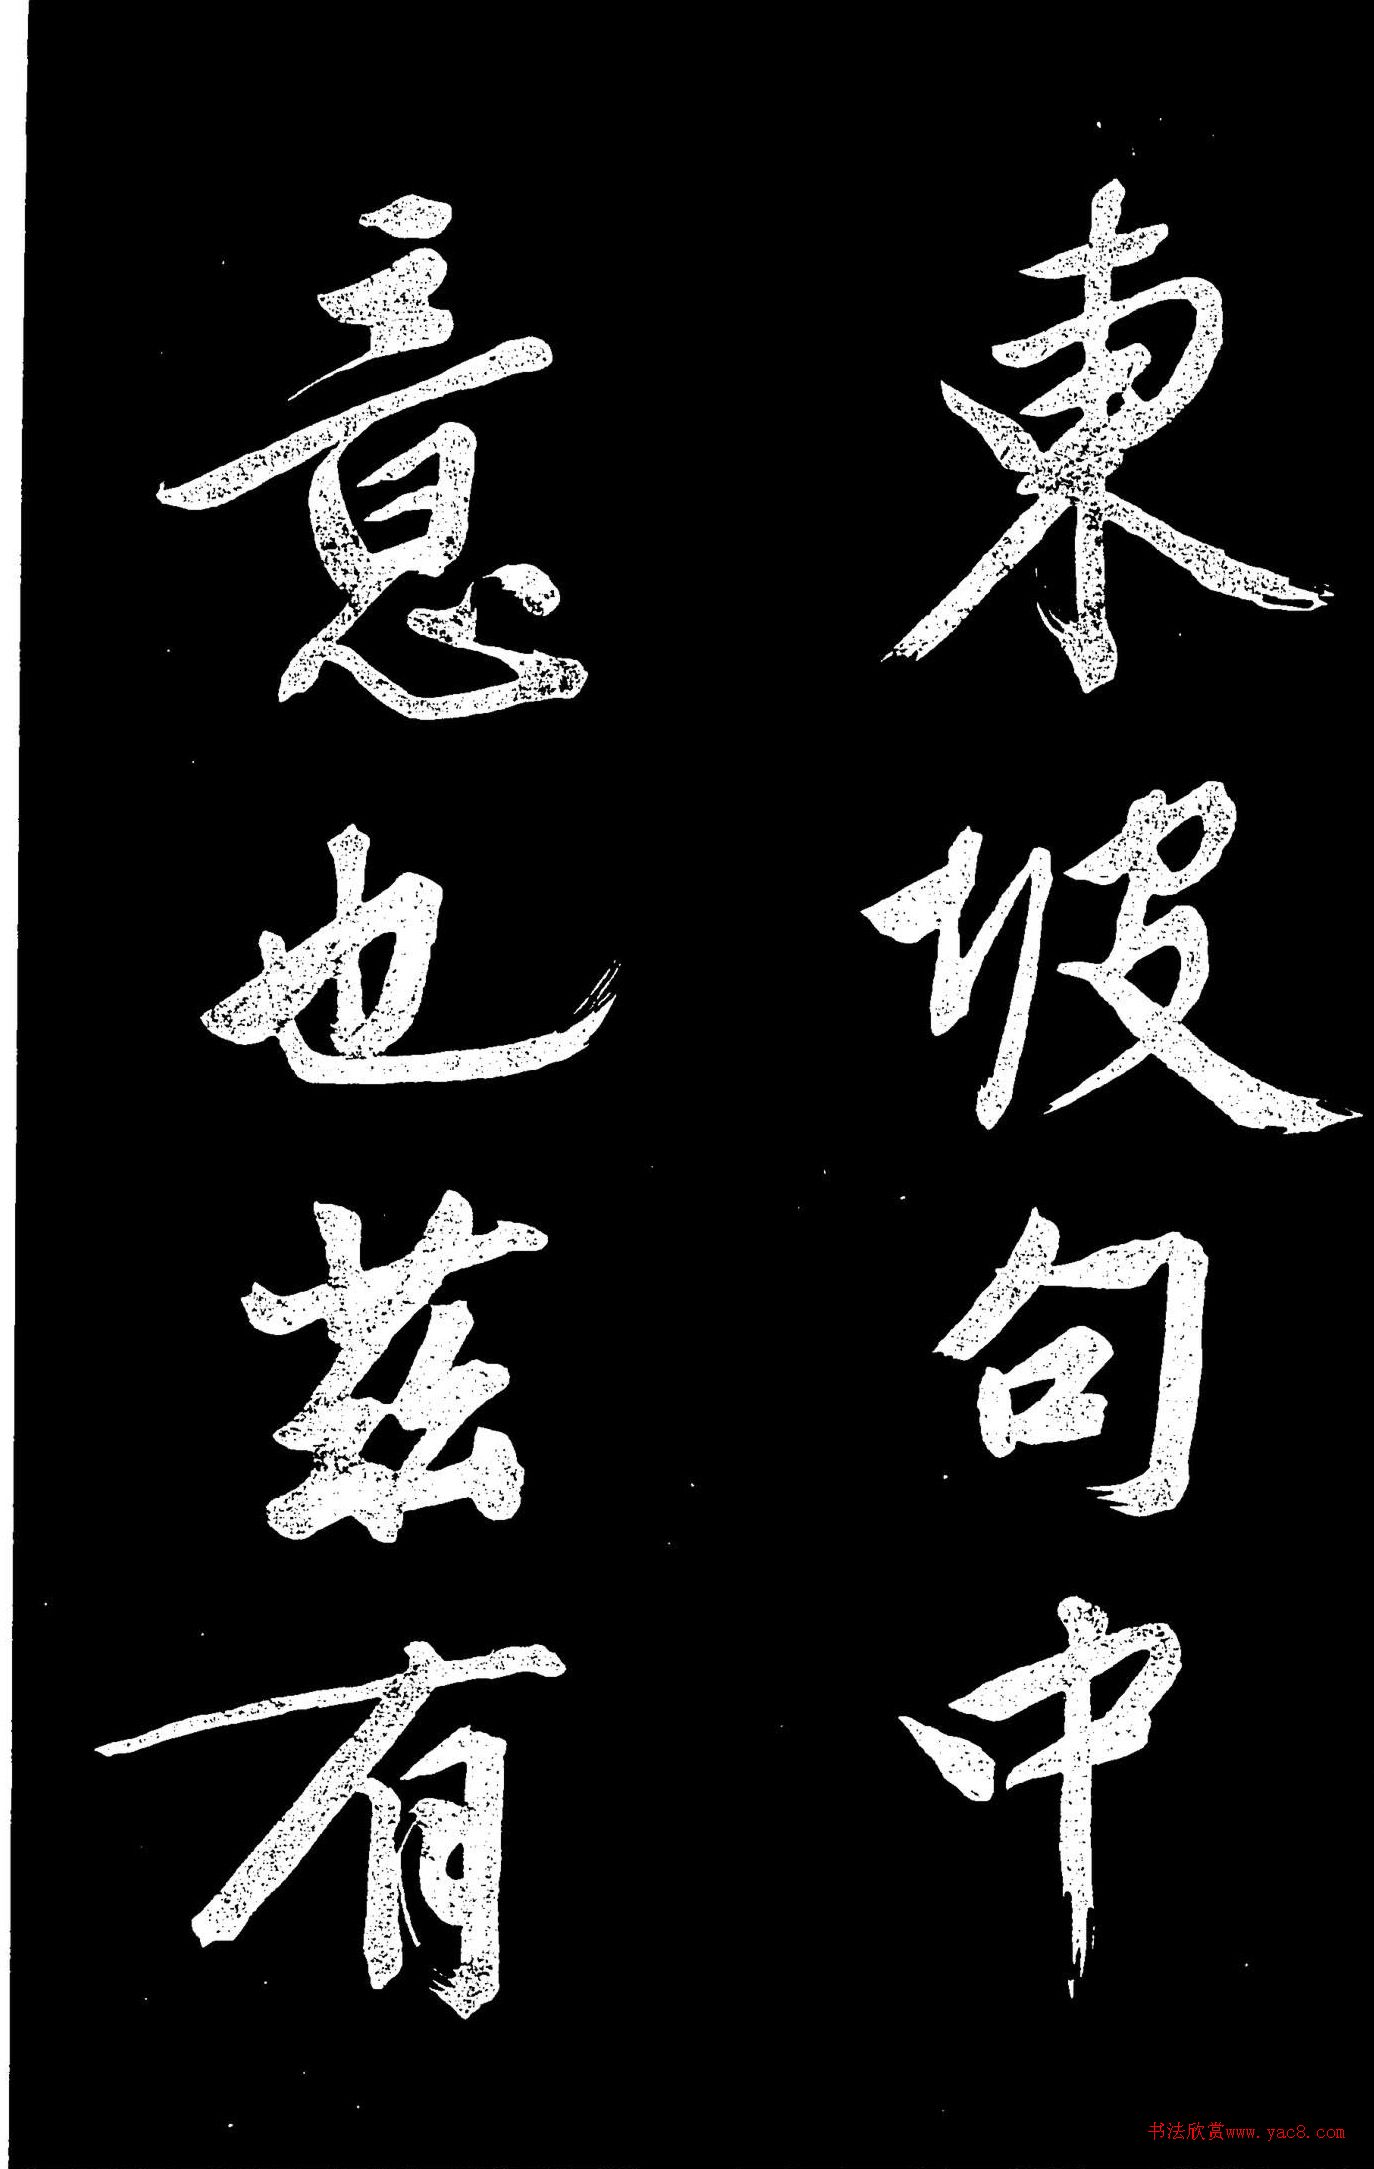 東坡句中
意也茲有
书法欣赏www.yac8.com